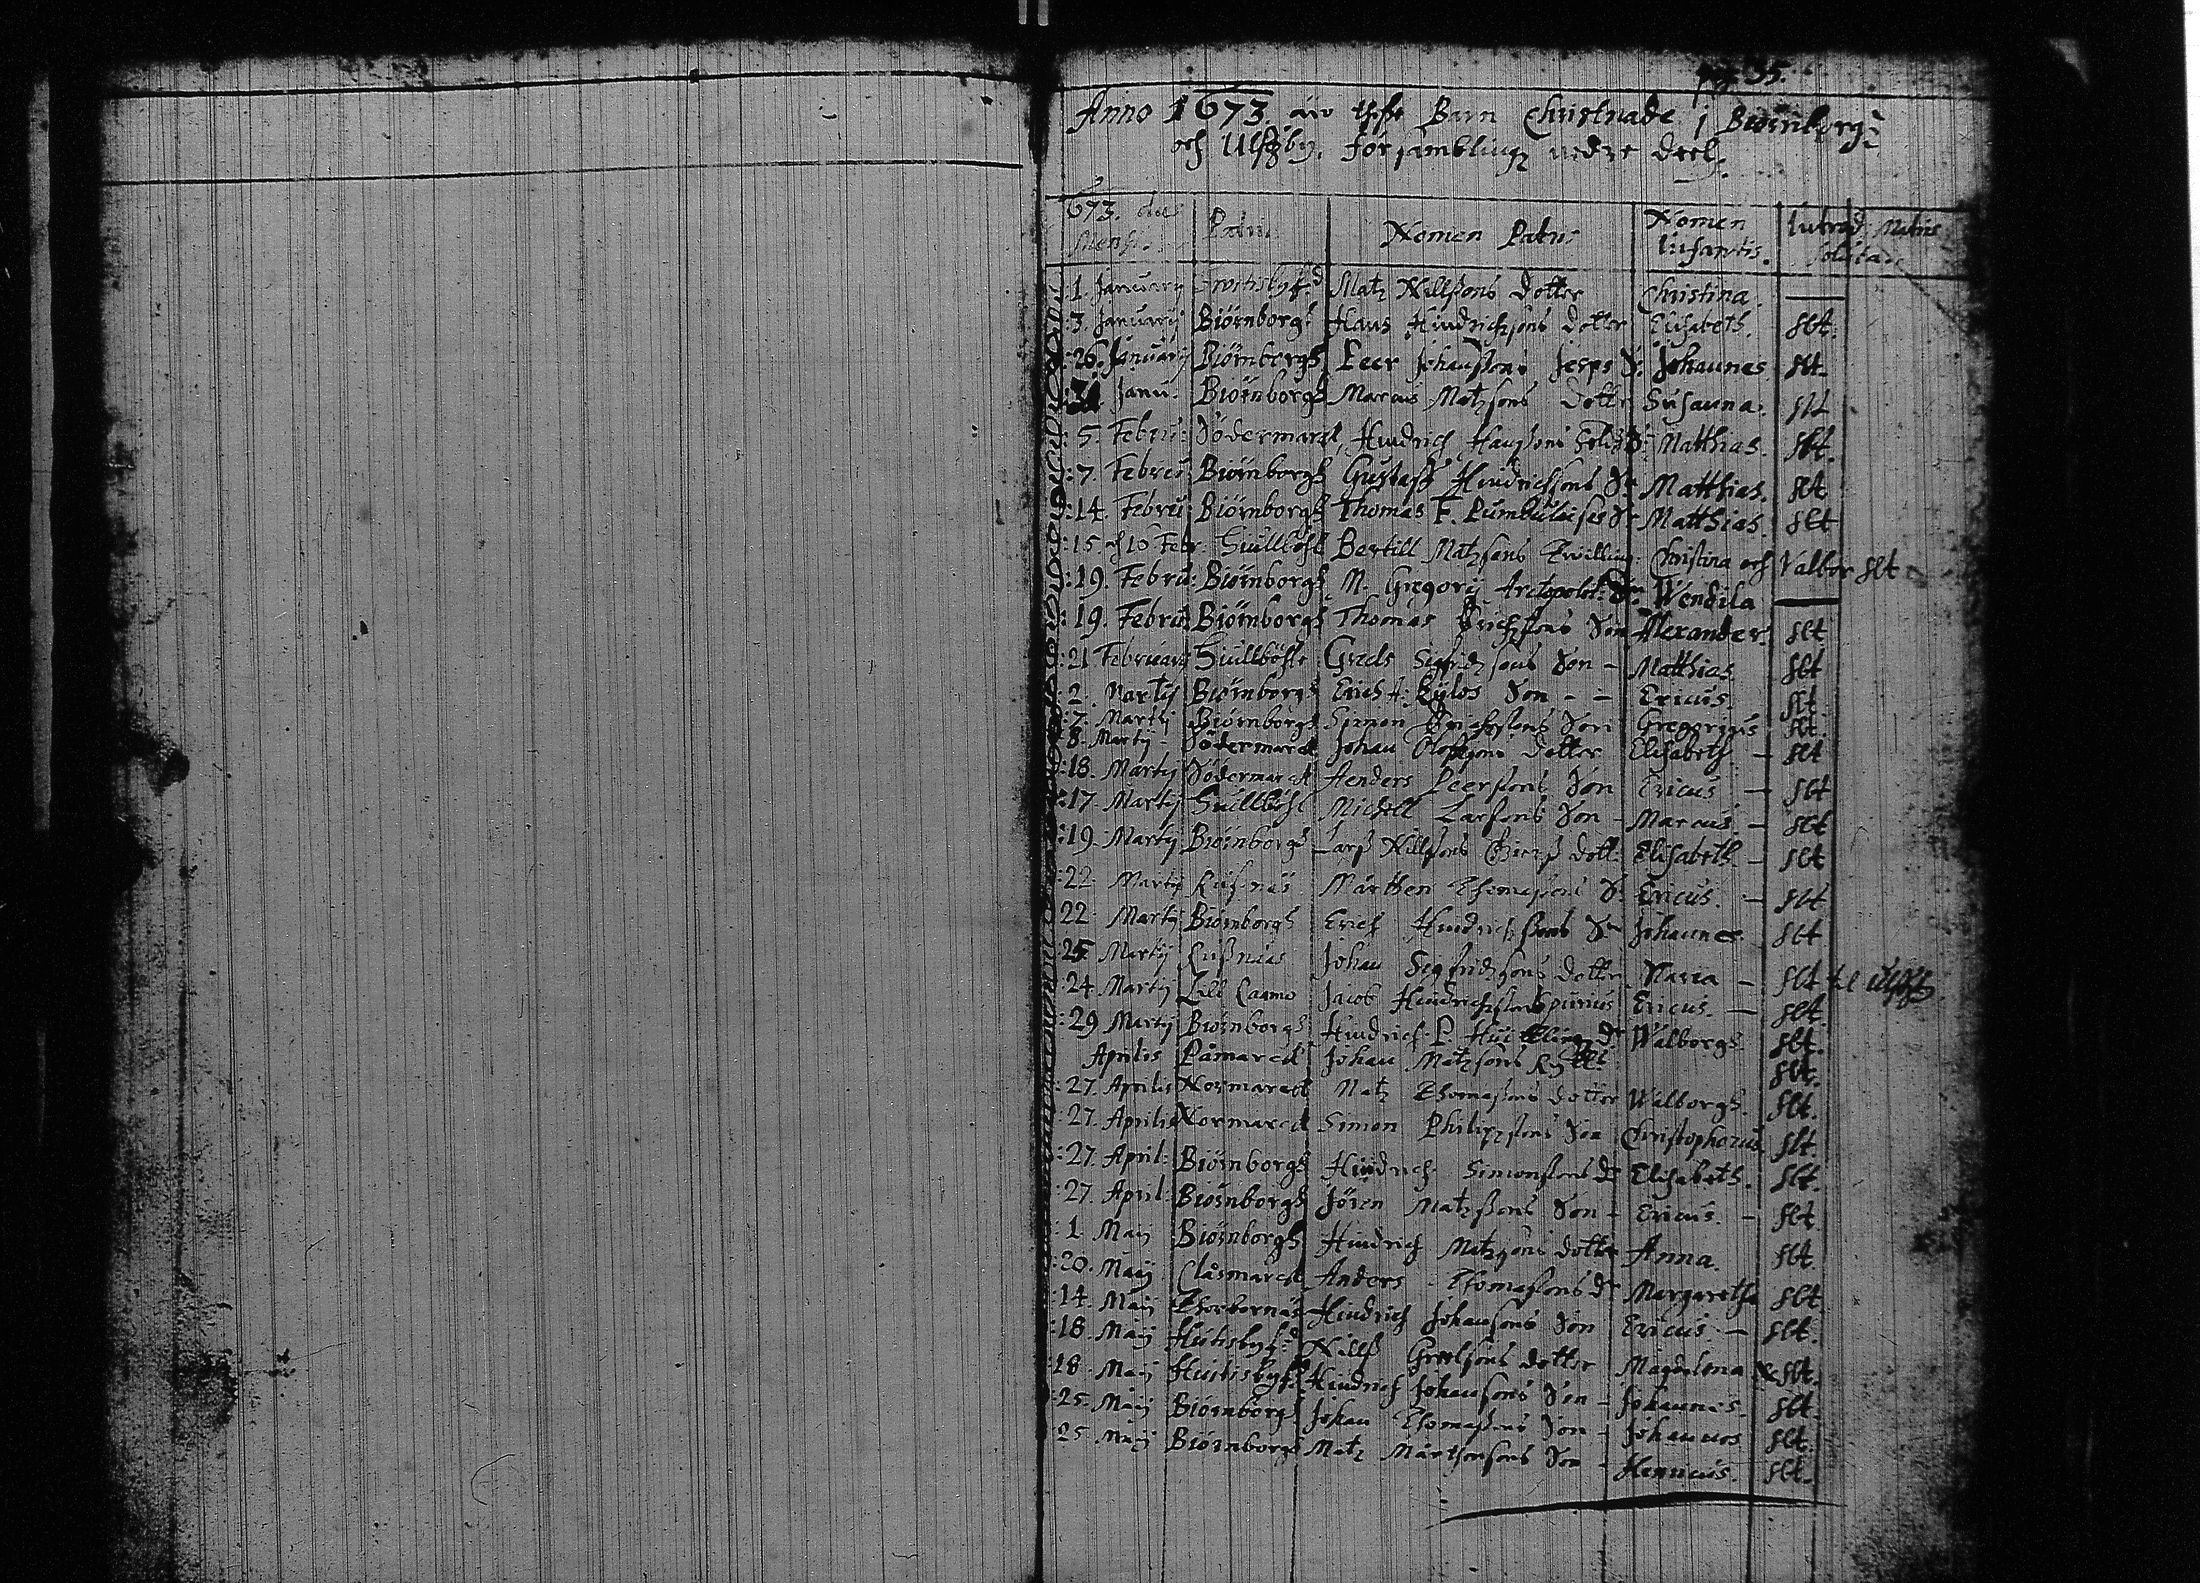 pag. 35.
Anno 1673. äro thesse Barn Christnade j Biörnborg:
och Ulffzby. församblingz nedre deel.
673. dies Mensis Patria Nomen Patris Nomen Infantis. Introd: Matris solitae
1. January Matz Nillßons dotter Christina. —
3. January Biörnborgh Hans Hindrichsons dotter Elisabeth. slt.
:26. January Biörnborgh Peer Johanßons Jesps S. Johannes slt.
Janu. Biörnborgh Marcus Matzsons dotter Susanna. slt
:5. Febru: Södermarck Hindrich Hanßons S. Matthias. slt.
:7. Febru Biörnborgh Gustaff Hindrichsons Sn Matthias. slt
:14. Febru: Biörnborgh Thomas F. Sn Matthias slt
:15. Febr. Siullböhle Bertill Matzsons Twilling: Christina och Valbor slt
:19. Febru: Biörnborgh M. Gregory Arctopolit: Dr. Wendila —
:19. Febru: Biörnborgh Thomas Erichssons Son Alexander. slt
:21 February Siullböhle Grels Sigfridssons Son – Matthias. slt
:2. Marty Biörnborgh Erich A: Kylos Son – – Ericus. slt
:7. Marty Biörnborgh Simon Son Gregorius slt.
8. Marty – Södermarck Johan Oloffsons dotter Elisabeth – slt
:18. Marty Södermarck Aenders Peersons Son Ericus – slt
:17 Marty Siullböhl Michell Larsons Son – Marcus – slt
:19. Marty Biörnborgh Larß Nillsons dott: Elisabeth – slt
:22. Marty Kusnäs Mårthen Thomasons S. Ericus. – slt
22. Marty Biörnborgh Erich Hindrichssons Sn Johannes. slt
25. Marty Kusnäs Johan Sigfridssons dotter Maria – slt
:24. Marty Lill Jacob Hindrichssons Ericus. – slt
:29 Marty Biörnborgh Hindrich P. dr Walborgh slt.
Aprilis Påmarck Johan Matzsons slt.
:27. Aprilis Normarck Matz Thomasons dotter Walborgh. slt.
:27. Aprilis Normarck Simon Philipssons Son Christophorus slt.
:27. April: Biörnborgh Hindrich Simonsons dr Elisabeth. slt.
:27. April: Biörnborgh Jören Matzßons Son – Ericus. – slt.
:1. Maij Biörnborgh Hindrich Matzsons dotter Anna. slt.
:20. Maij Clåsmarck Anders Thomasons dr Margaretha slt.
:14. Maij Thorbernäs Hindrich Johansons Son Ericus – slt.
:18. Maij Huitisbyf. Nillß Grelsons dotter Magdalena slt.
:18. Maij Huitisbyf. Hindrich Johansons Son – Johannes. slt.
:25. Maij Biörnborgh Johan Thomaßons Son – Johannes slt.
:25 Maij Biörnborgh Matz Mårthensons Son – Henricus. slt.